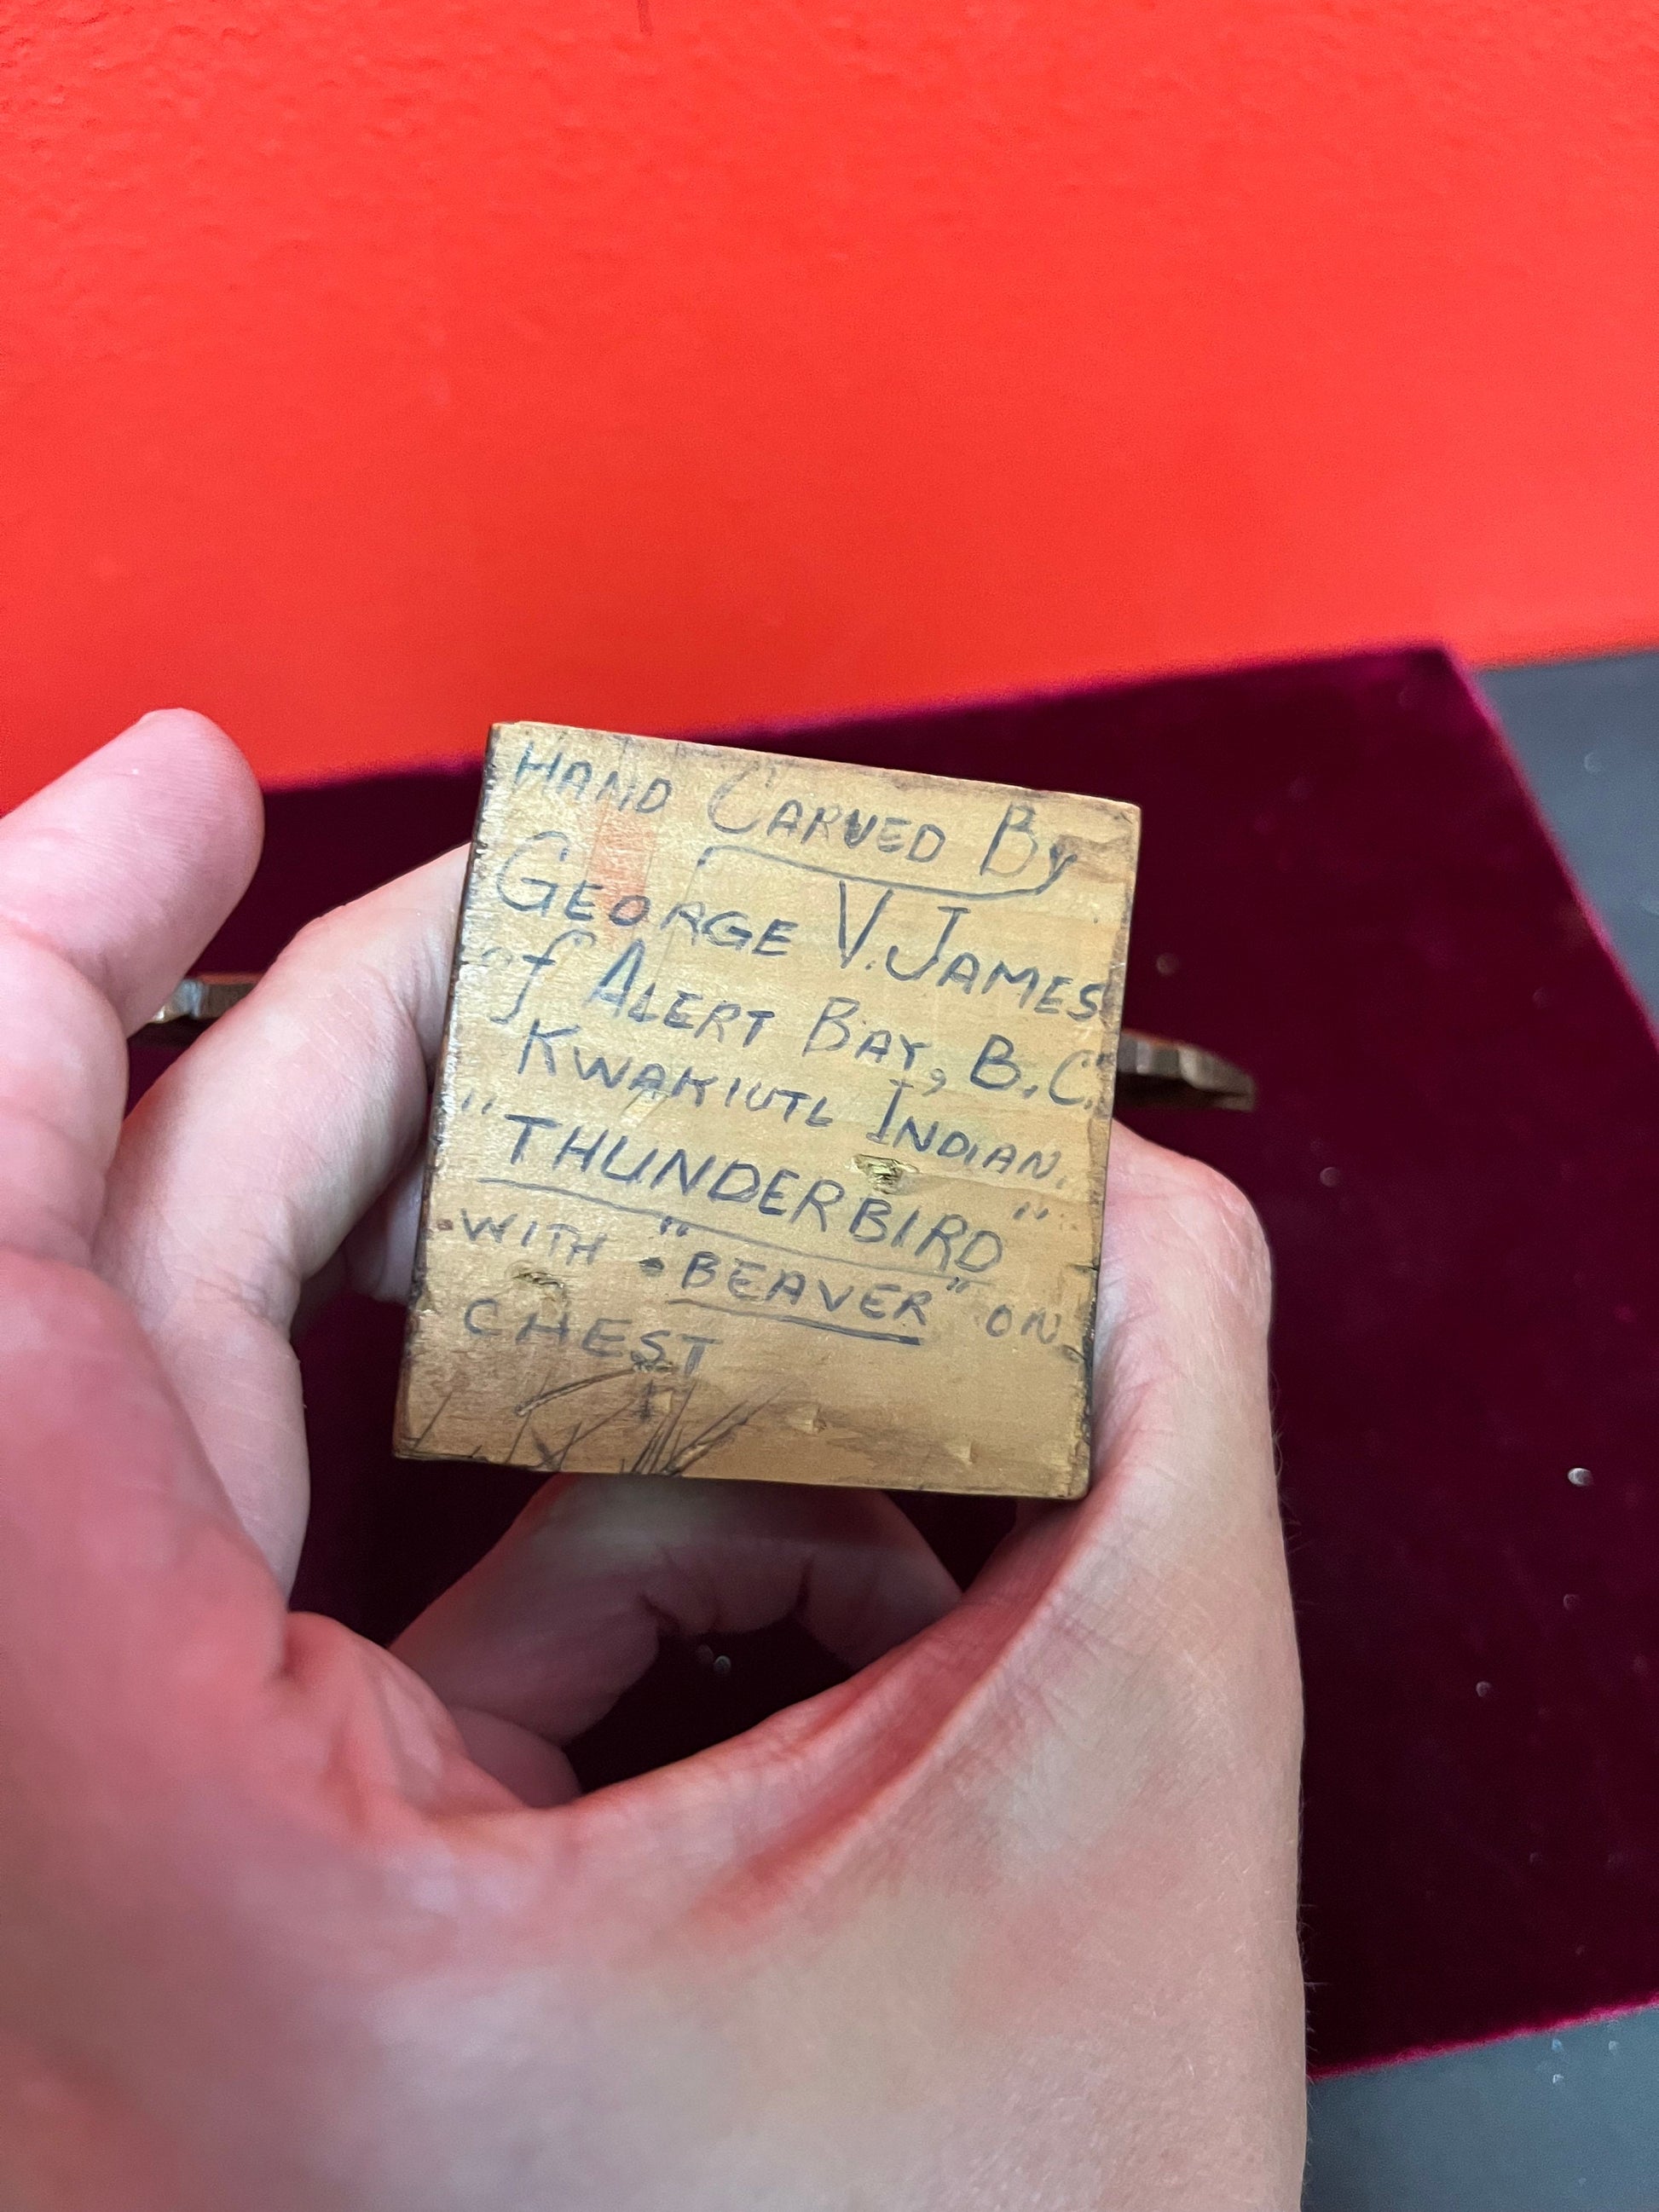 HAND CARVED By
GEORGE V. JAMES
of ALERT BAY, B.C.
KWAKIUTL INDIAN.
"THUNDERBIRD"
WITH "BEAVER" ON
CHEST